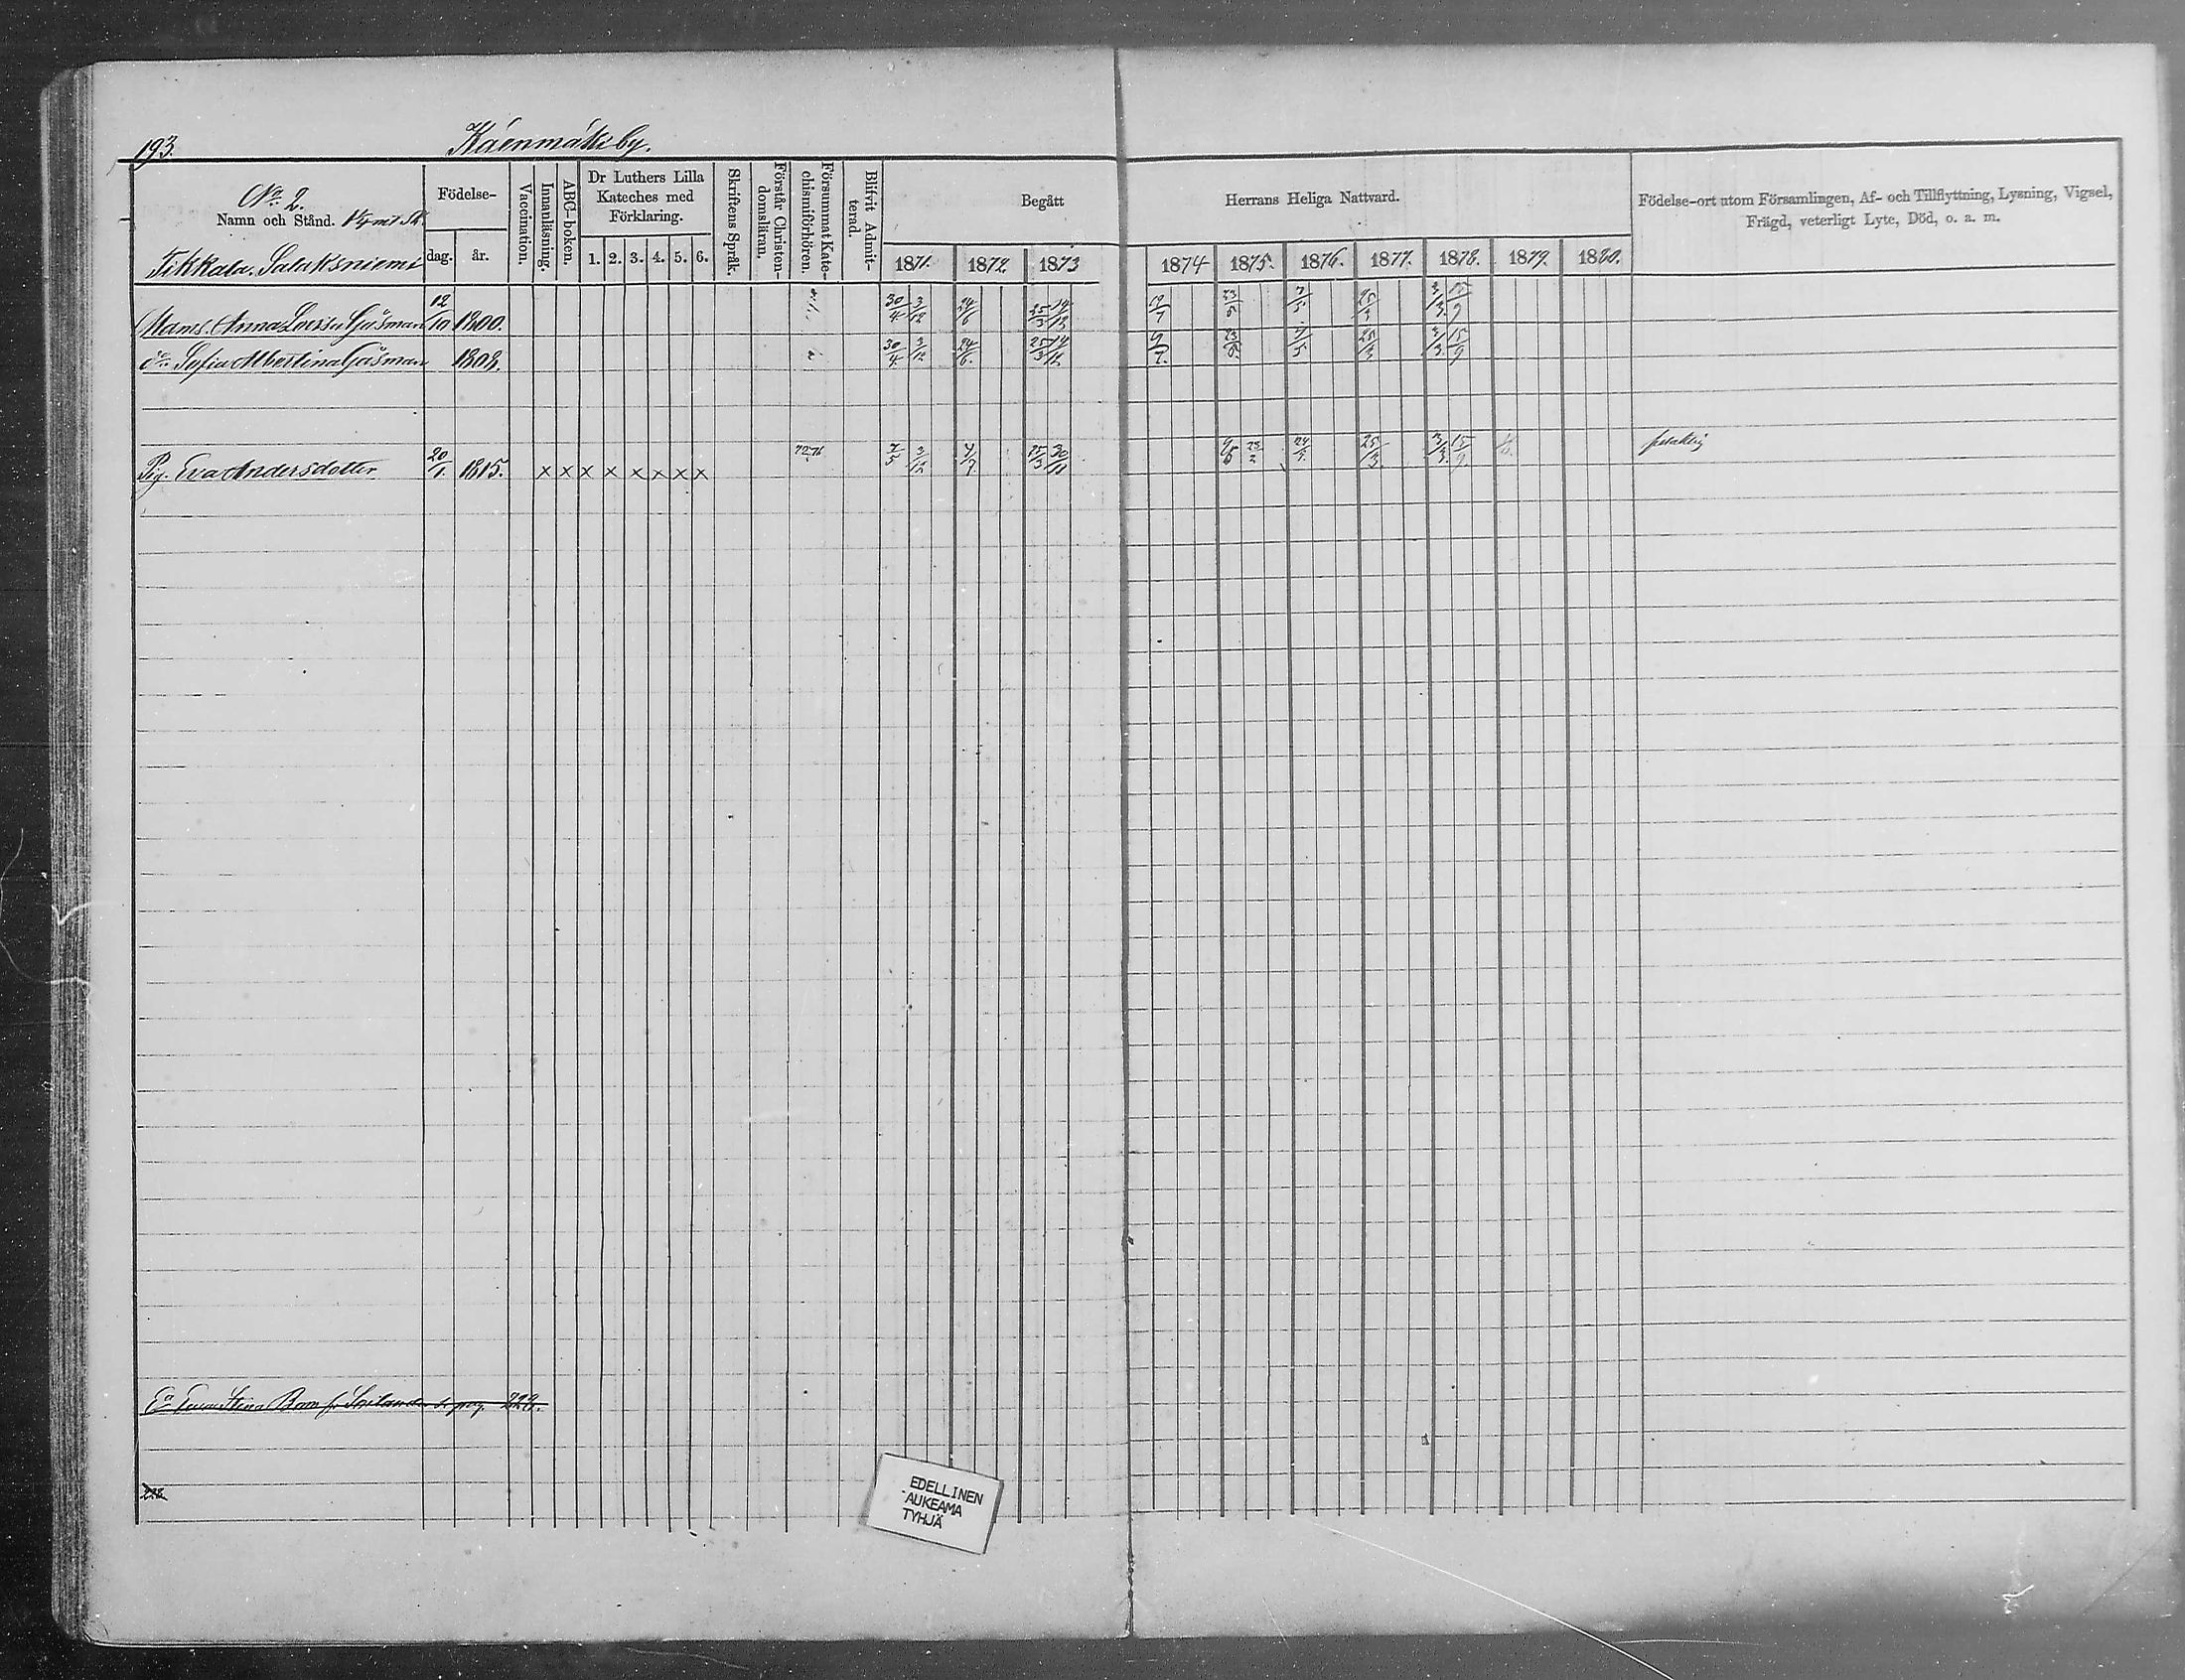 193.
Käenmäki by.
No 2.
Namn och Stånd.
Tikkala. Salaksniemi
Födelse-
dag. år.
Vaccination.
Innanläsning.
ABC-boken.
Dr Luthers Lilla
Kateches med
Förklaring.
1. 2. 3. 4. 5. 6.
Skriftens Språk.
Förstår Christen-
domsläran.
Försummat Kate-
chismiförhören.
Blifvit Admit-
terad.
Begått Herrans Heliga Nattvard.
1871. 1872. 1873 1874 1875. 1876. 1877. 1878. 1879. 1880.
Födelse-ort utom Församlingen, Af- och Tillflyttning, Lysning, Vigsel,
Frägd, veterligt Lyte, Död, o. a. m.
Mams. Anna Lovisa Gåsman 12/10 1800. 30/4 3/12 24/6 25/3 14/12 3/3 15/9
do Sofia Albertina Gåsman 1808. 30/4 3/12 24/6. 25/3 14/12 9/7. 23/5. 7/5 25/3 3/3. 15/9
Pig. Eva Andersdotter 20/1. 1815. x x x x x x x x 7/5 3/12 7/7 25/3 30/11 25/3. 3/3. 15/9.
Stina 222.
EDELLINEN
AUKEAMA
TYHJÄ